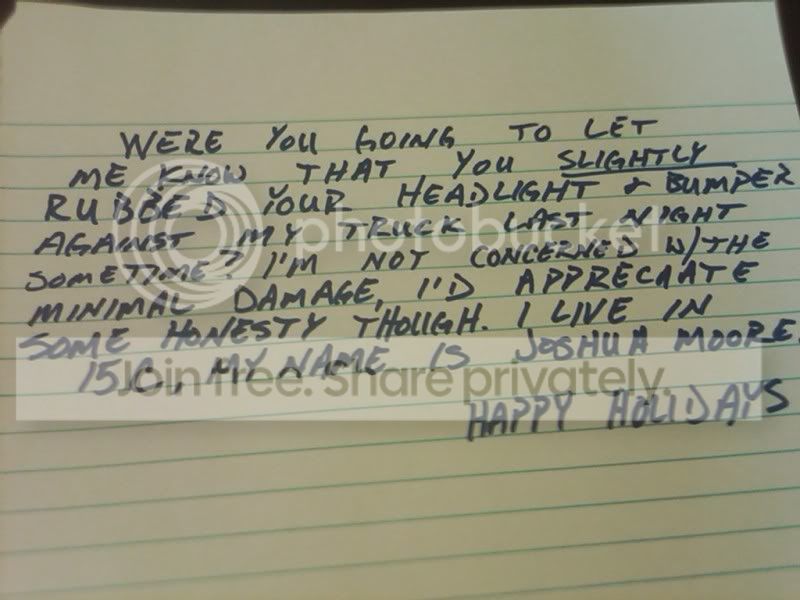 WERE YOU GOING TO LET
ME KNOW THAT YOU SLIGHTLY
RUBBED YOUR HEADLIGHT & BUMPER
AGAINST MY TRUCK LAST NIGHT
SOMETIME? I'M NOT CONCERNED W/THE
MINIMAL DAMAGE, I'D APPRECAATE
SOME HONESTY THOUGH. I LIVE IN
15C, MY NAME IS JOSHUA MOORE.
HAPPY HOLIDAYS
photobucket
Join free. Share privately.